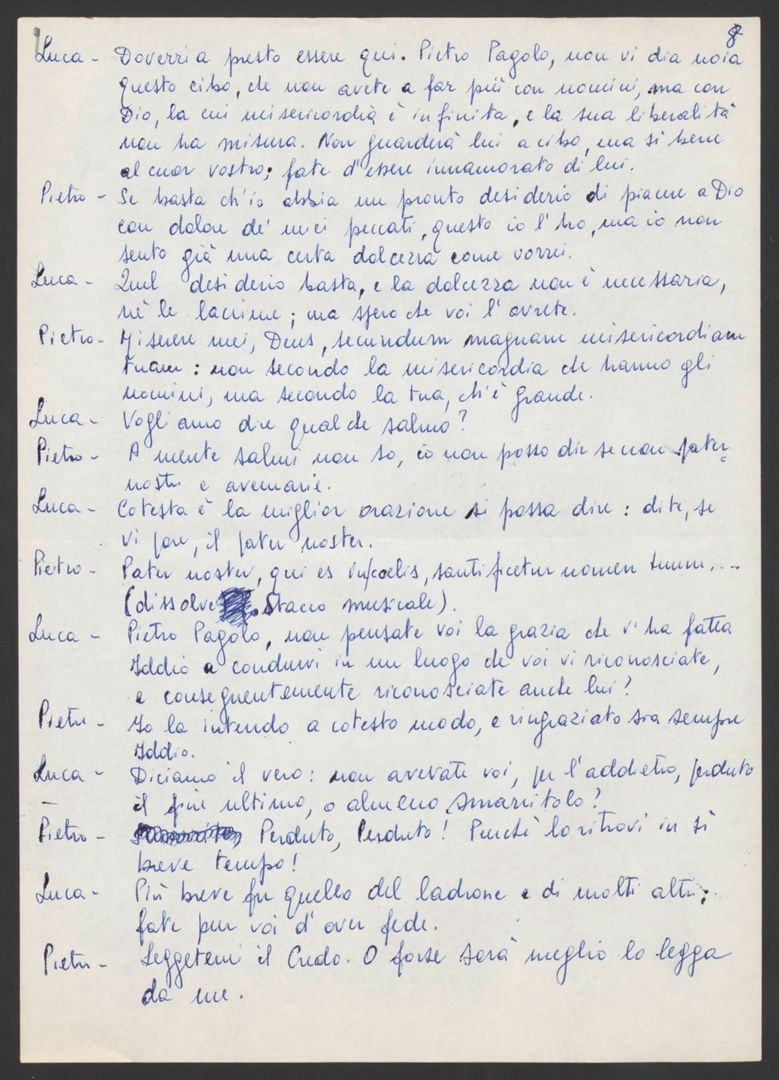 8
Luca - Doverria presto essere qui. Pietro Pagolo, non vi dia noia
questo cibo, che non avete a far più con uomini, ma con
Dio, la cui misericordia è infinita, e la sua liberalità
non ha misura. Non guarderà lui a cibo, ma sì bene
al cuor vostro; fate d'essere innamorato di lui.
Pietro - Se basta ch'io abbia un pronto desiderio di piacere a Dio
con dolor de' miei peccati, questo io l'ho, ma io non
sento già una certa dolcezza come vorrei.
Luca - Quel desiderio basta, e la dolcezza non è necessaria,
nè le lacrime; ma spero che voi l'avrete.
Pietro - Miserere mei, Deus, secundum magnam misericordiam
tuam: non secondo la misericordia che hanno gli
uomini, ma secondo la tua, ch'è grande.
Luca - Vogliamo dire qualche salmo?
Pietro - A mente salmi non so, io non posso dir se non pater
nostri e avemarie.
Luca - Cotesta è la miglior orazione si possa dire: dite, se
vi pare, il pater noster.
Pietro - Pater noster, qui es in coelis, santificetur nomen tuum, ...
(dissolve. Stacco musicale).
Luca - Pietro Pagolo, non pensate voi la grazia che v'ha fatta
Iddio a condurvi in un luogo che voi vi riconosciate,
e conseguentemente riconosciate anche lui?
Pietro - Io la intendo a cotesto modo, e ringraziato sia sempre
Iddio.
Luca - Diciamo il vero: non avevate voi, per l'addietro, perduto
il fine ultimo, o almeno smarritolo?
Pietro - Perduto, Perduto! Purchè lo ritrovi in sì
breve tempo!
Luca - Più breve fu quello del ladrone e di molti altri;
fate pur voi d'aver fede.
Pietro - Leggetemi il Credo. O forse sarà meglio lo legga
da me.